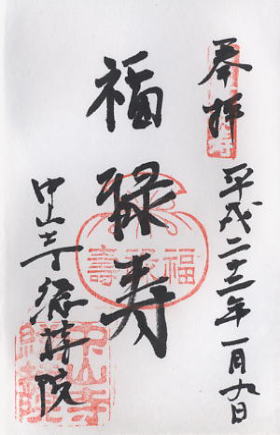 奉拝
平成二十三年一月九日
福禄寿
福禄壽
中山寺総持院